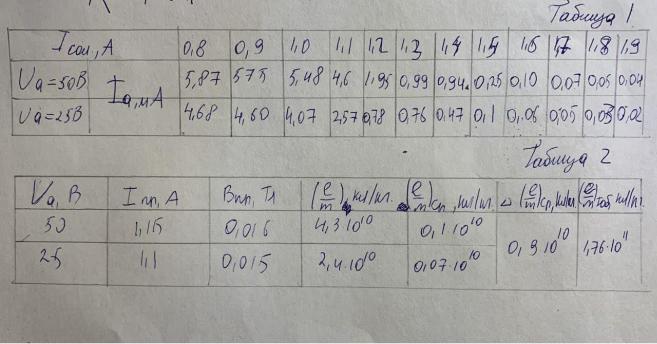 Таблица 1
Iсол, А 0,8 0,9 1,0 1,1 1,2 1,3 1,4 1,5 1,6 1,7 1,8 1,9
Ua=50В Ia,мА 5,87 5,75 5,48 4,6 1,95 0,99 0,94 0,25 0,10 0,07 0,05 0,04
Ua=25В 4,68 4,60 4,07 2,57 0,78 0,76 0,47 0,1 0,06 0,05 0,03 0,02
Таблица 2
Ua, В Iкр, А Bкр, Тл (e/m), кл/кг. (e/m)ср, кл/кг. Δ(e/m)ср, кл/кг (e/m)таб кл/кг.
50 1,15 0,016 4,3·10¹⁰ 0,1·10¹⁰ 0,9·10¹⁰ 1,76·10¹¹
25 1,1 0,015 2,4·10¹⁰ 0,07·10¹⁰